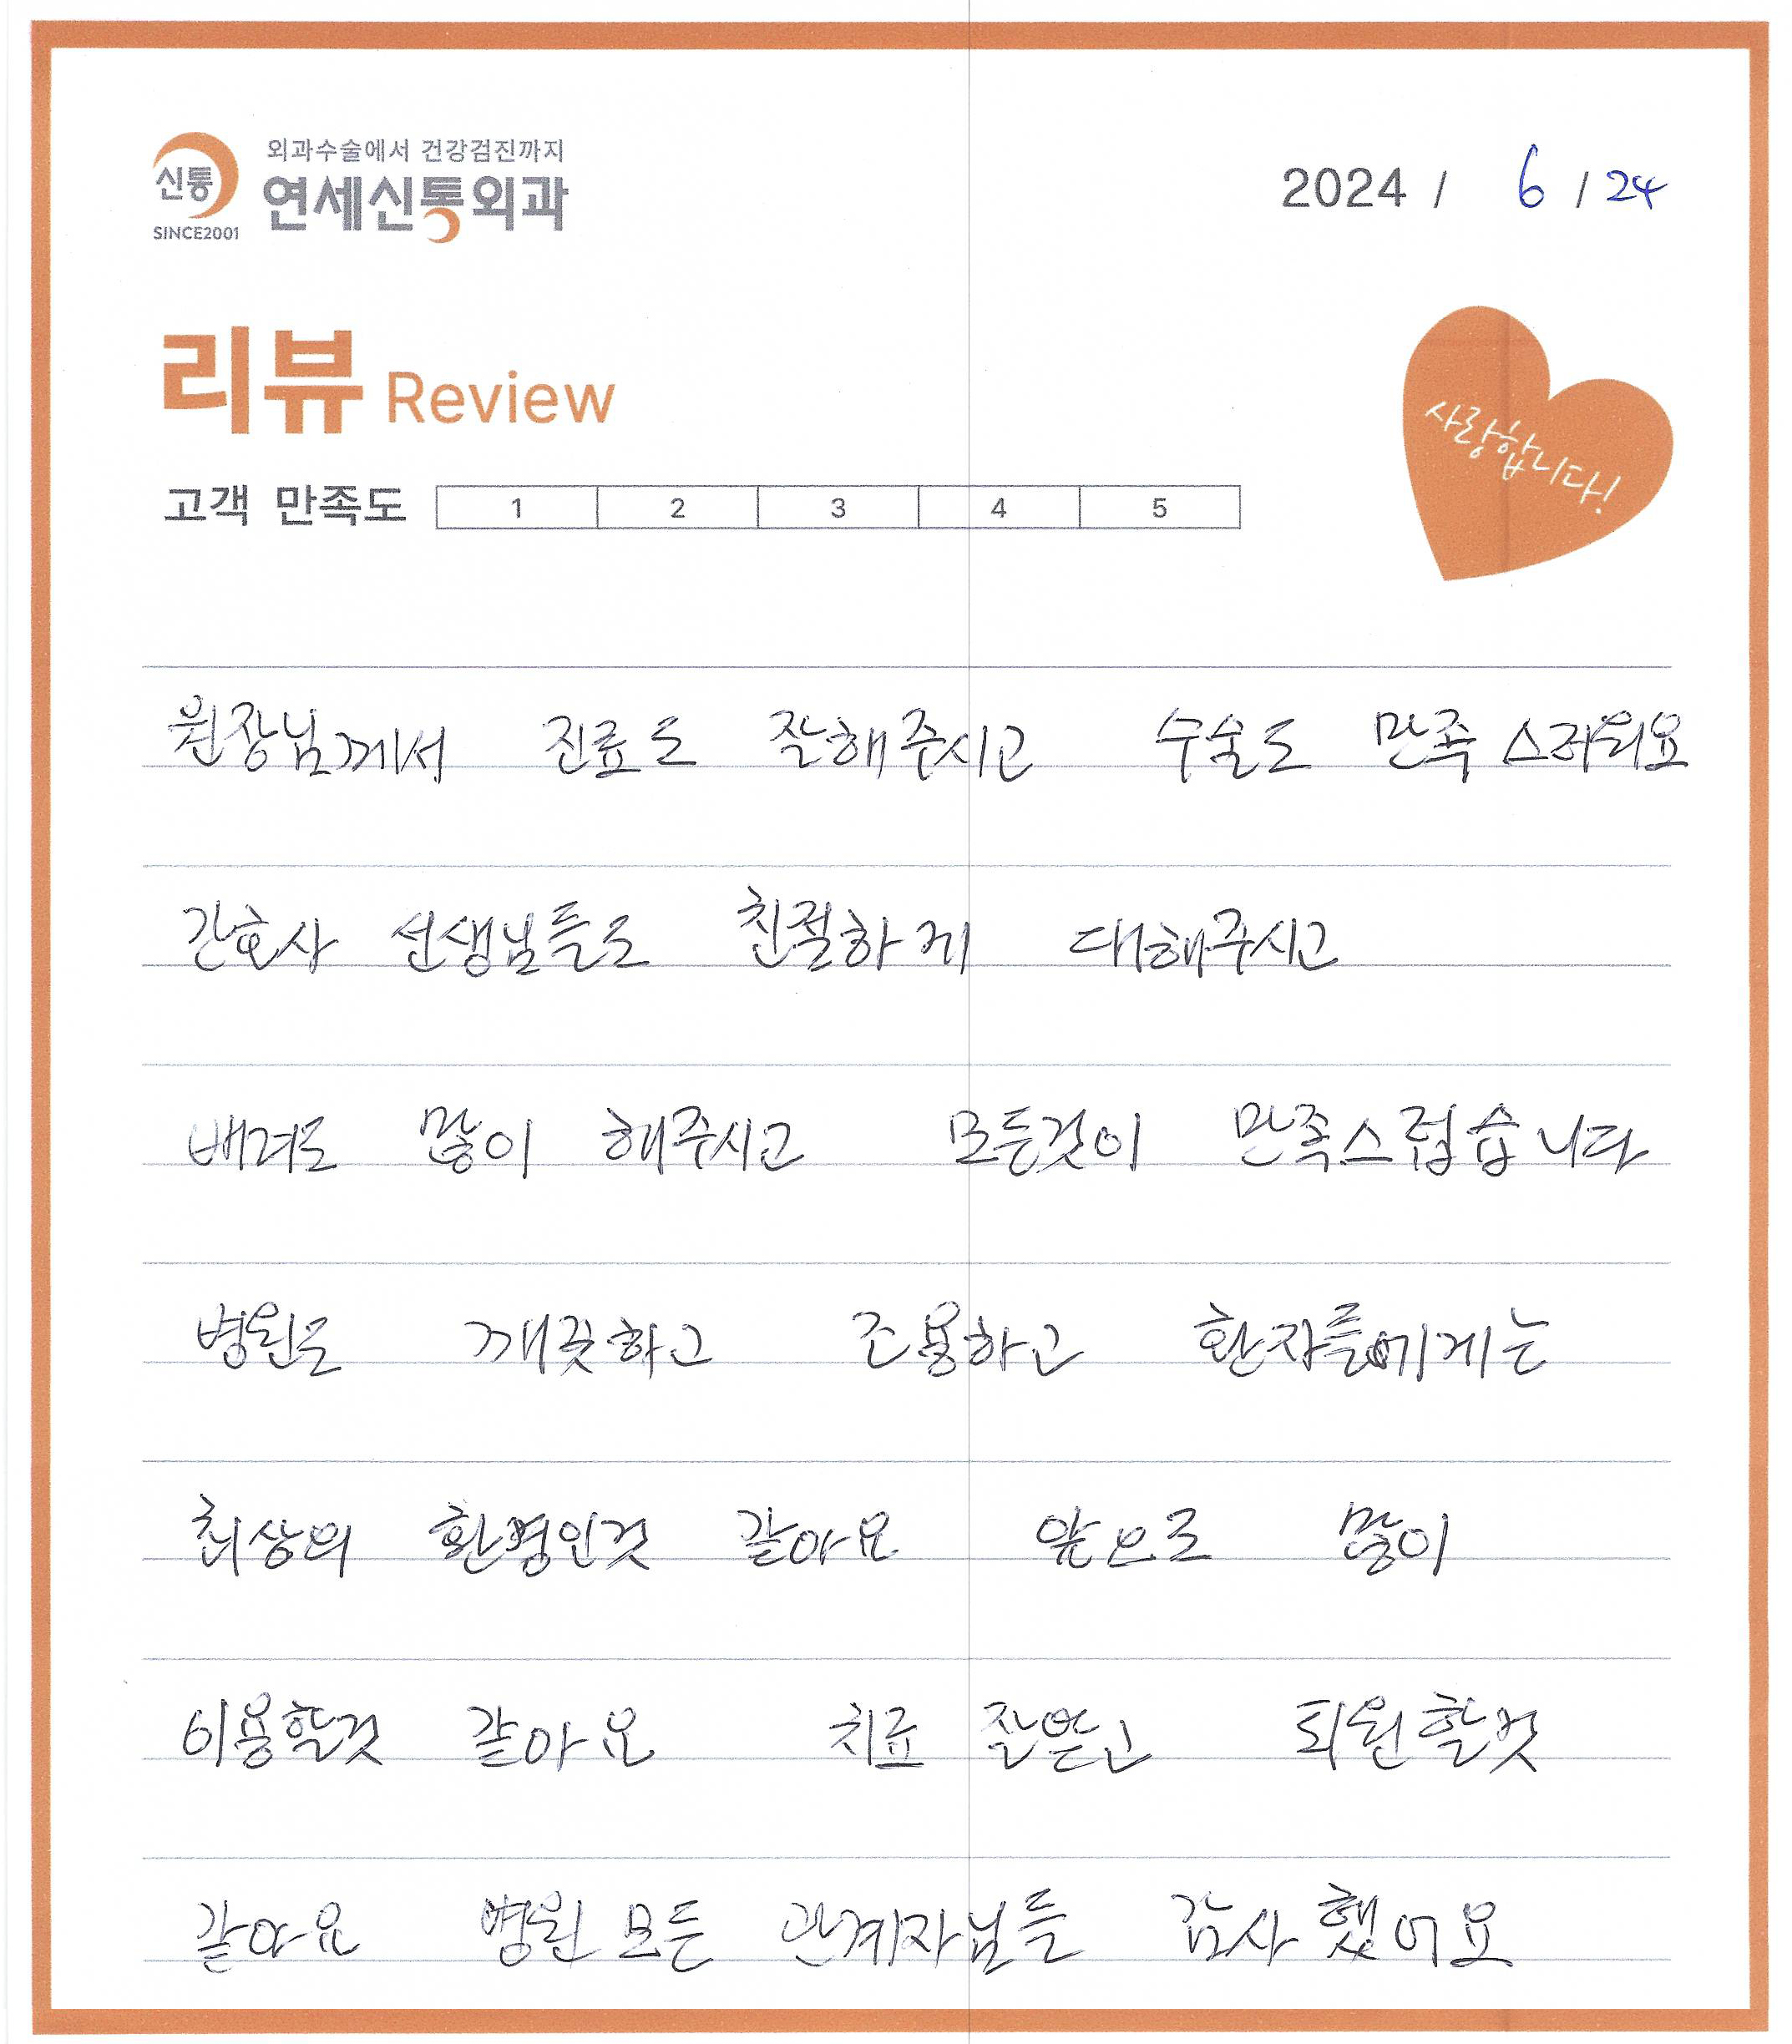 외과수술에서 건강검진까지
신통 연세신통외과
SINCE2001
2024 / 6 / 24
리뷰 Review
사랑합니다!
고객 만족도 1 2 3 4 5
원장님께서 진료도 잘해주시고 수술도 만족스러워요
간호사 선생님들도 친절하게 대해주시고
배려도 많이 해주시고 모든것이 만족스럽습니다
병원도 깨끗하고 조용하고 환자들에게는
최상의 환경인것 같아요 앞으로 많이
이용할것 같아요 치료 잘받고 퇴원할것
같아요 병원 모든 관계자님들 감사했어요